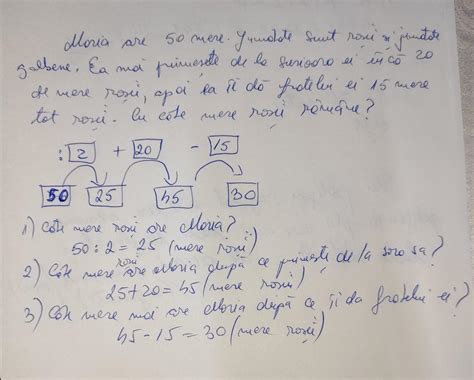 Maria are 50 mere. Jumătate sunt roșii și jumătate
galbene. Ea mai primește de la surioara ei încă 20
de mere roșii, apoi ea îi dă fratelui ei 15 mere
tot roșii. Cu câte mere roșii rămâne?
: 2 + 20 - 15
50 25 45 30
1) Câte mere roșii are Maria?
50 : 2 = 25 (mere roșii)
2) Câte mere roșii are Maria după ce primește de la sora sa?
25+20 = 45 (mere roșii)
3) Câte mere mai are Maria după ce îi da fratelui ei?
45-15 = 30 (mere roșii)